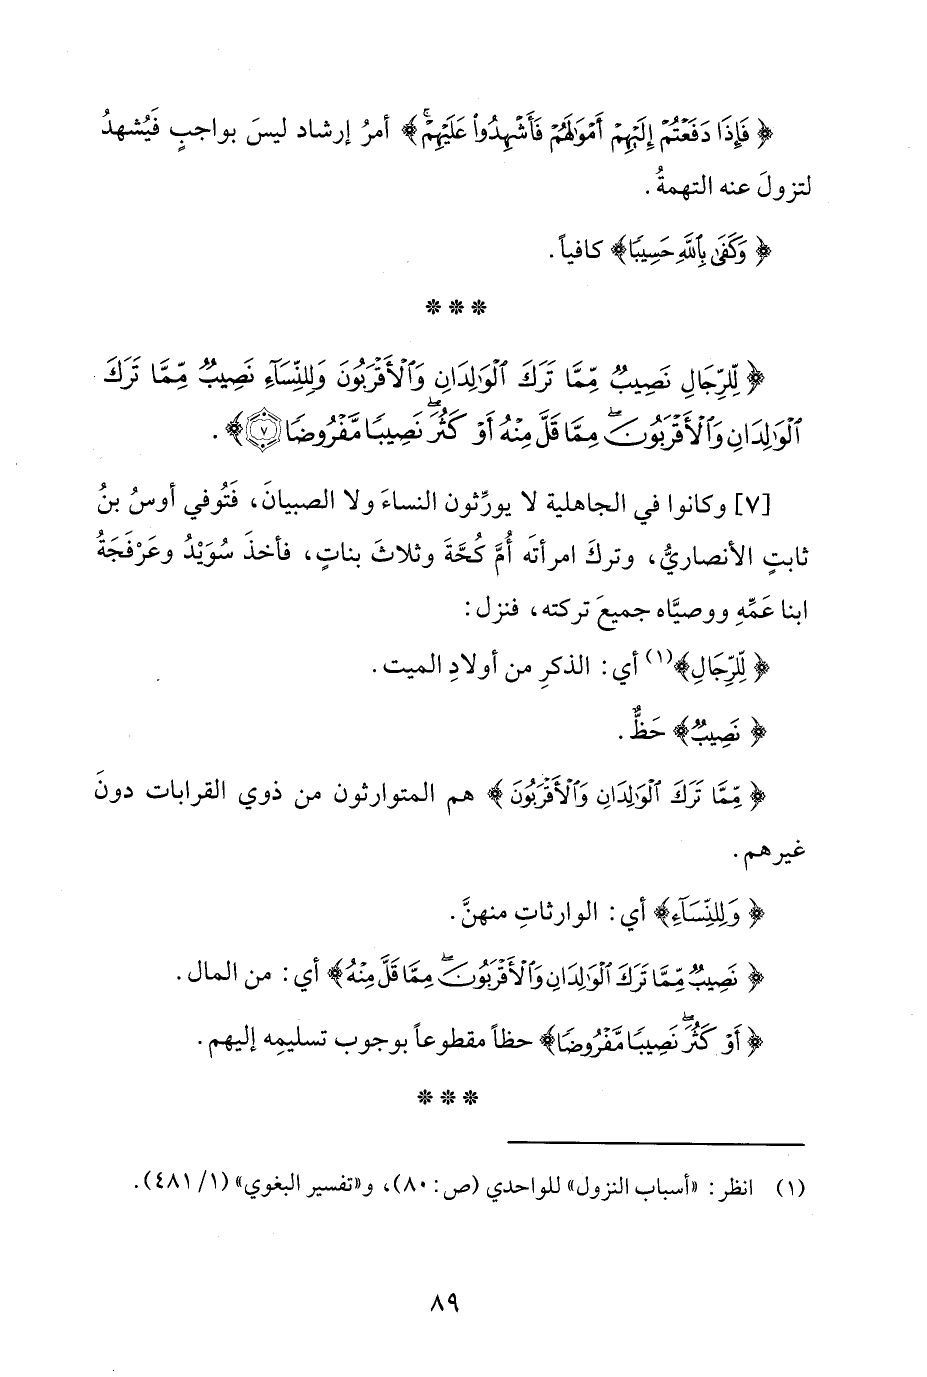 ﴿ فَإِذَا دَفَعْتُمْ إِلَيْهِمْ أَمْوَٰلَهُمْ فَأَشْهِدُوا۟ عَلَيْهِمْ ۚ﴾ أمرُ إرشاد ليسَ بواجبٍ فَيُشهدُ
لتزولَ عنه التهمةُ.
﴿ وَكَفَىٰ بِٱللَّهِ حَسِيبًا﴾ كافياً.
* * *
﴿ لِّلرِّجَالِ نَصِيبٌ مِّمَّا تَرَكَ ٱلْوَٰلِدَانِ وَٱلْأَقْرَبُونَ وَلِلنِّسَآءِ نَصِيبٌ مِّمَّا تَرَكَ
ٱلْوَٰلِدَانِ وَٱلْأَقْرَبُونَ مِمَّا قَلَّ مِنْهُ أَوْ كَثُرَ ۚ نَصِيبًا مَّفْرُوضًا ٧﴾.
[٧] وكانوا في الجاهلية لا يورِّثون النساءَ ولا الصبيانَ، فَتُوفي أوسُ بنُ
ثابتٍ الأنصاريُّ، وتركَ امرأتَه أُمَّ كُحَّةَ وثلاثَ بناتٍ، فأخذَ سُوَيْدُ وعَرْفَجَةُ
ابنا عَمِّهِ ووصيَّاه جميعَ تركته، فنزل:
﴿ لِّلرِّجَالِ﴾(١) أي: الذكرِ من أولادِ الميت.
﴿ نَصِيبٌ﴾ حَظٌّ.
﴿ مِّمَّا تَرَكَ ٱلْوَٰلِدَانِ وَٱلْأَقْرَبُونَ ﴾ هم المتوارثون من ذوي القرابات دونَ
غيرهم.
﴿ وَلِلنِّسَآءِ﴾ أي: الوارثاتِ منهنَّ.
﴿ نَصِيبٌ مِّمَّا تَرَكَ ٱلْوَٰلِدَانِ وَٱلْأَقْرَبُونَ مِمَّا قَلَّ مِنْهُ﴾ أي: من المال.
﴿ أَوْ كَثُرَ ۚ نَصِيبًا مَّفْرُوضًا﴾ حظاً مقطوعاً بوجوب تسليمِه إليهم.
* * *
(١) انظر: «أسباب النزول» للواحدي (ص: ٨٠)، و«تفسير البغوي» (١/ ٤٨١).
٨٩